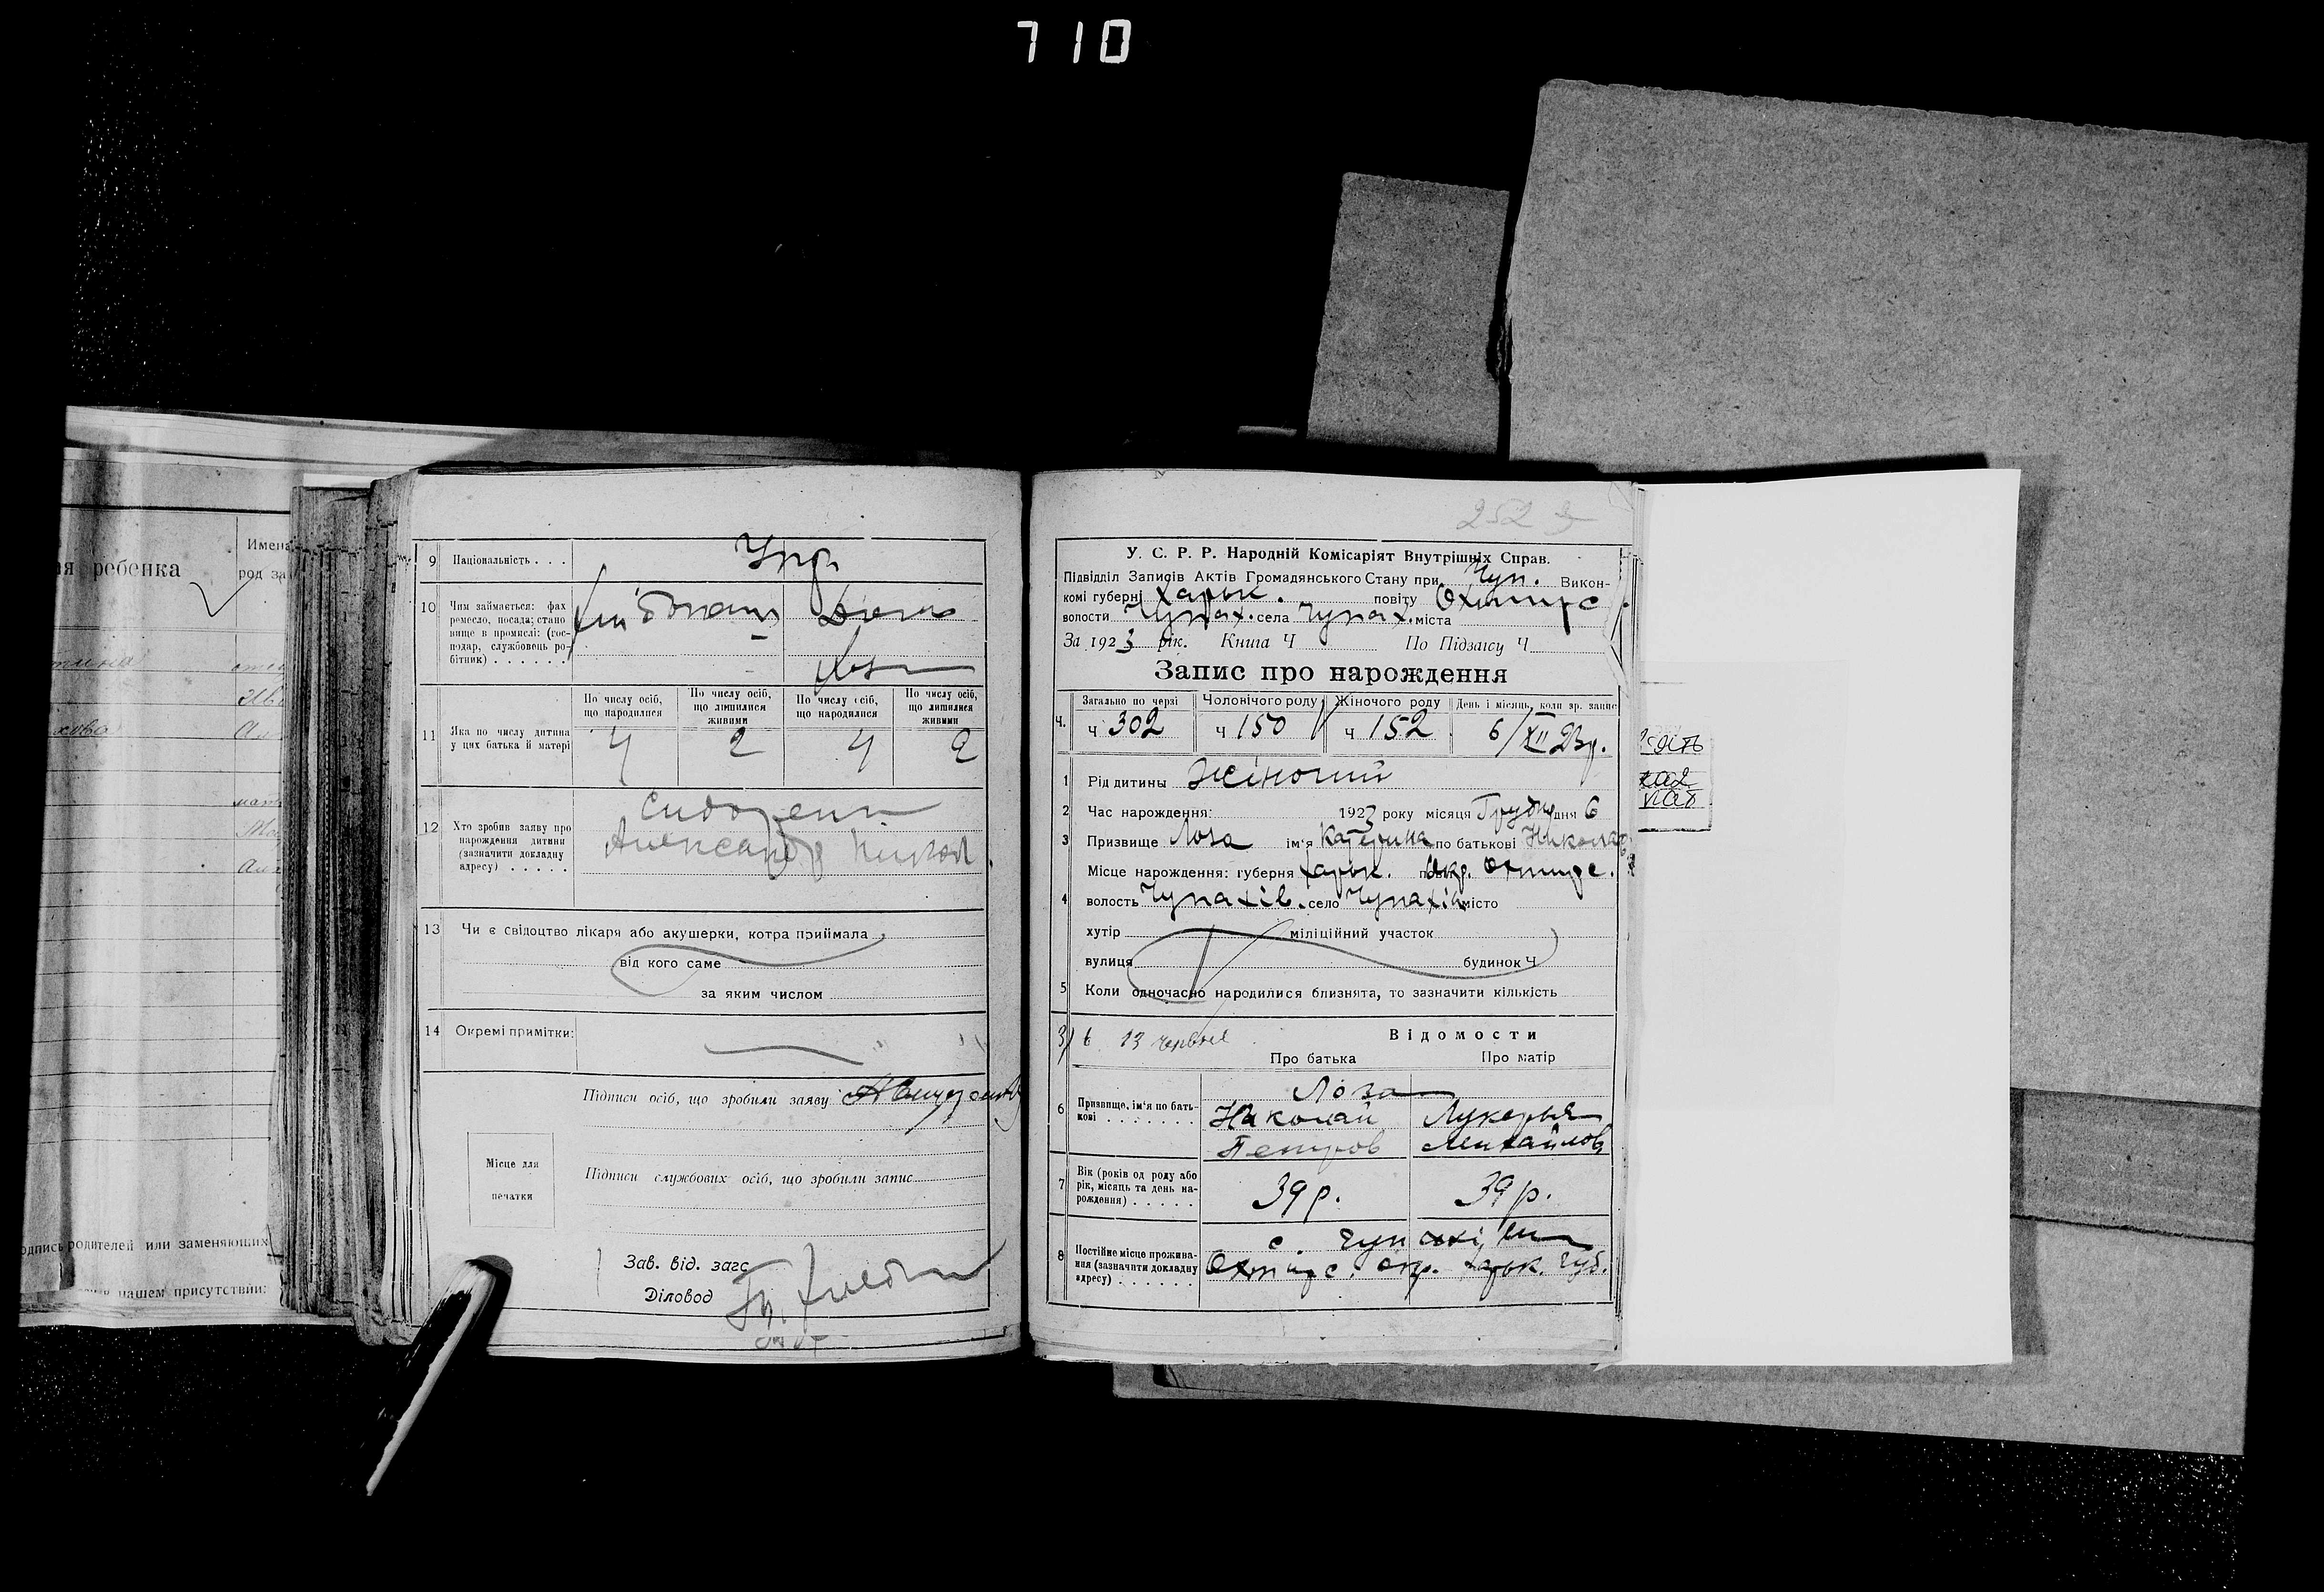 710
я ребенка
Имена
род за
одпись родителей или заменяющих
нашем присутствии:
9 Національність . . . Укр.
10 Чим займається: фах
ремесло, посада; стано
вище в промислі: (гос-
подар, службовець ро-
бітник) . . . . . .
11 Яка по числу дитина
у цих батька й матері
По числу осіб, що народилися
По числу осіб, що лишилися живими
По числу осіб, що народилися
По числу осіб, що лишилися живими
4 2 4 2
12 Хто зробив заяву про
нарождення дитини
(зазначити докладну
адресу) . . . . .
Сидоренко
Александр
13 Чи є свідоцтво лікаря або акушерки, котра приймала
від кого саме
за яким числом
14 Окремі примітки:
Підписи осіб, що зробили заяву
Місце для
печатки
Підписи службових осіб, що зробили запис
Зав. від. загс
Діловод
252
У. С. Р. Р. Народній Комісаріят Внутрішніх Справ.
Підвідділ Записів Актів Громадянського Стану при Чуп. Викон-
комі губерні Харьк. повіту Охтирс.
волости Чупах. села Чупах. міста
За 1923 рік. Книга Ч По Підзагсу Ч
Запис про нарождення
Ч.
Загально по черзі ч 302
Чоловічого роду ч 150
Жіночого роду ч 152
День і місяць, коли зр. запис 6/XII 23 р.
1 Рід дитини Жіночий
2 Час нарождення: 1923 року місяця Грудня дня 6
3 Призвище Лоза ім'я Катерина по батькові Никола
Місце нарождення: губерня Харьк. Окр. Охтирс.
4 волость Чупахів. село Чупахівк місто
хутір міліційний участок
вулиця будинок Ч
5 Коли одночасно народилися близнята, то зазначити кількість
13 червня
Відомости
Про батька Про матір
6 Призвище, ім'я по бать-
кові . . . . . . .
Лоза
Николай Лукерья
Петров Михайлов
7 Вік (років од роду або
рік, місяць та день на-
рождення) . . . . .
39 р. 39 р.
8 Постійне місце прожива-
ння (зазначити докладну
адресу) . . . . . . .
Охтирс. окр. Харьк. губ.